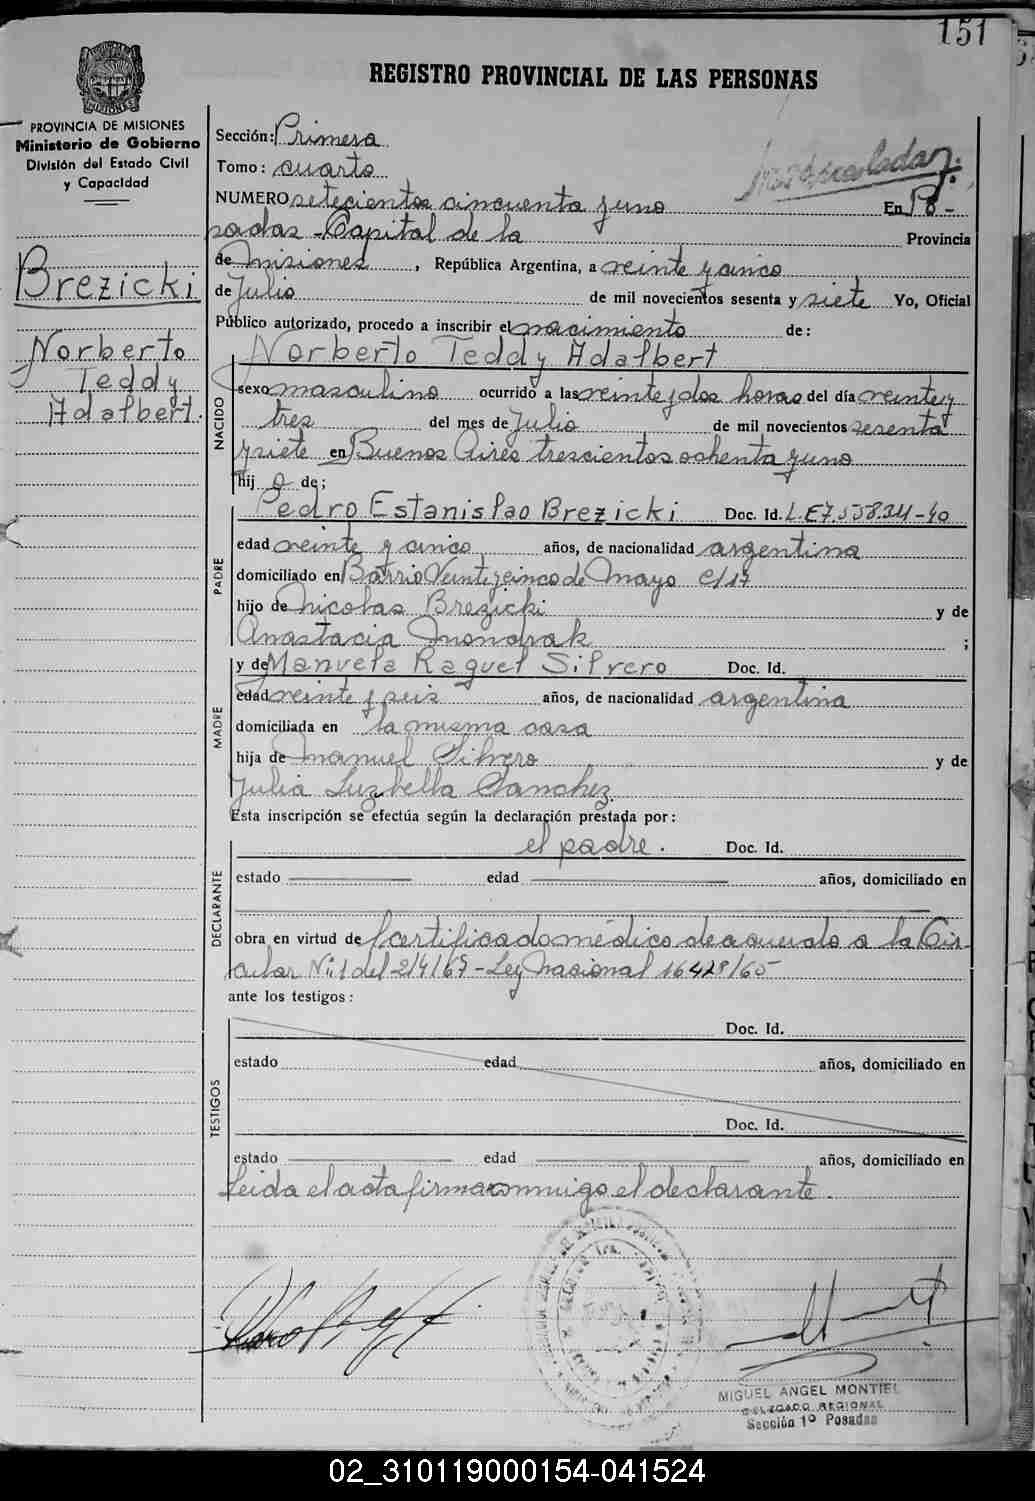 151
REGISTRO PROVINCIAL DE LAS PERSONAS
PROVINCIA DE MISIONES
Ministerio de Gobierno
División del Estado Civil
y Capacidad
Brezicki
Norberto
Teddy
Adalbert.
Sección: Primera
Tomo: cuarto
NUMERO setecientos cincuenta y uno En Po-
sadas - Capital de la Provincia
de Misiones, República Argentina, a veinte y cinco
de Julio de mil novecientos sesenta y siete Yo, Oficial
Público autorizado, procedo a inscribir el nacimiento de:
Norberto Teddy Adalbert
NACIDO
sexo masculino ocurrido a las veinte y dos horas del día veinte y
tres del mes de Julio de mil novecientos sesenta
y siete en Buenos Aires trescientos ochenta y uno
hij o de;
PADRE
Pedro Estanislao Brezicki Doc. Id. L.E 7.558.311-40
edad veinte y cinco años, de nacionalidad argentina
domiciliado en Barrio Veinte y cinco de Mayo C/17
hijo de Nicolas Brezicki y de
Anastacia ;
MADRE
y de Manuela Raquel Silvero Doc. Id.
edad veinte y seis años, de nacionalidad argentina
domiciliada en la misma casa
hija de Manuel Silvero y de
Julia Luzbella Sanchez.
Esta inscripción se efectúa según la declaración prestada por:
DECLARANTE
el padre. Doc. Id.
estado edad años, domiciliado en
obra en virtud de certificado médico de acuerdo a la Cir-
cular Nº 1 del 2/4/67 - Ley Nacional 16428/65
ante los testigos:
TESTIGOS
Doc. Id.
estado edad años, domiciliado en
Doc. Id.
estado edad años, domiciliado en
Leida el acta firma conmigo el declarante.
MIGUEL ANGEL MONTIEL
DELEGADO REGIONAL
Sección 1º Posadas
02_310119000154-041524